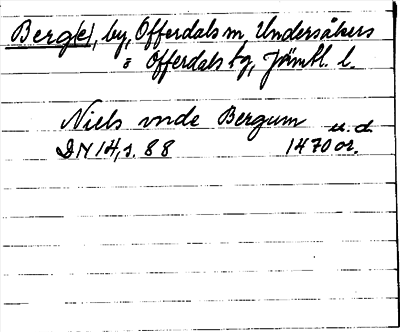 Berg(e), by, Offerdals sn, Undersåkers
o Offerdals tg, Jämtl. l.
Niels vnde Bergum u.d.
DN 14, s. 88 1470 or.